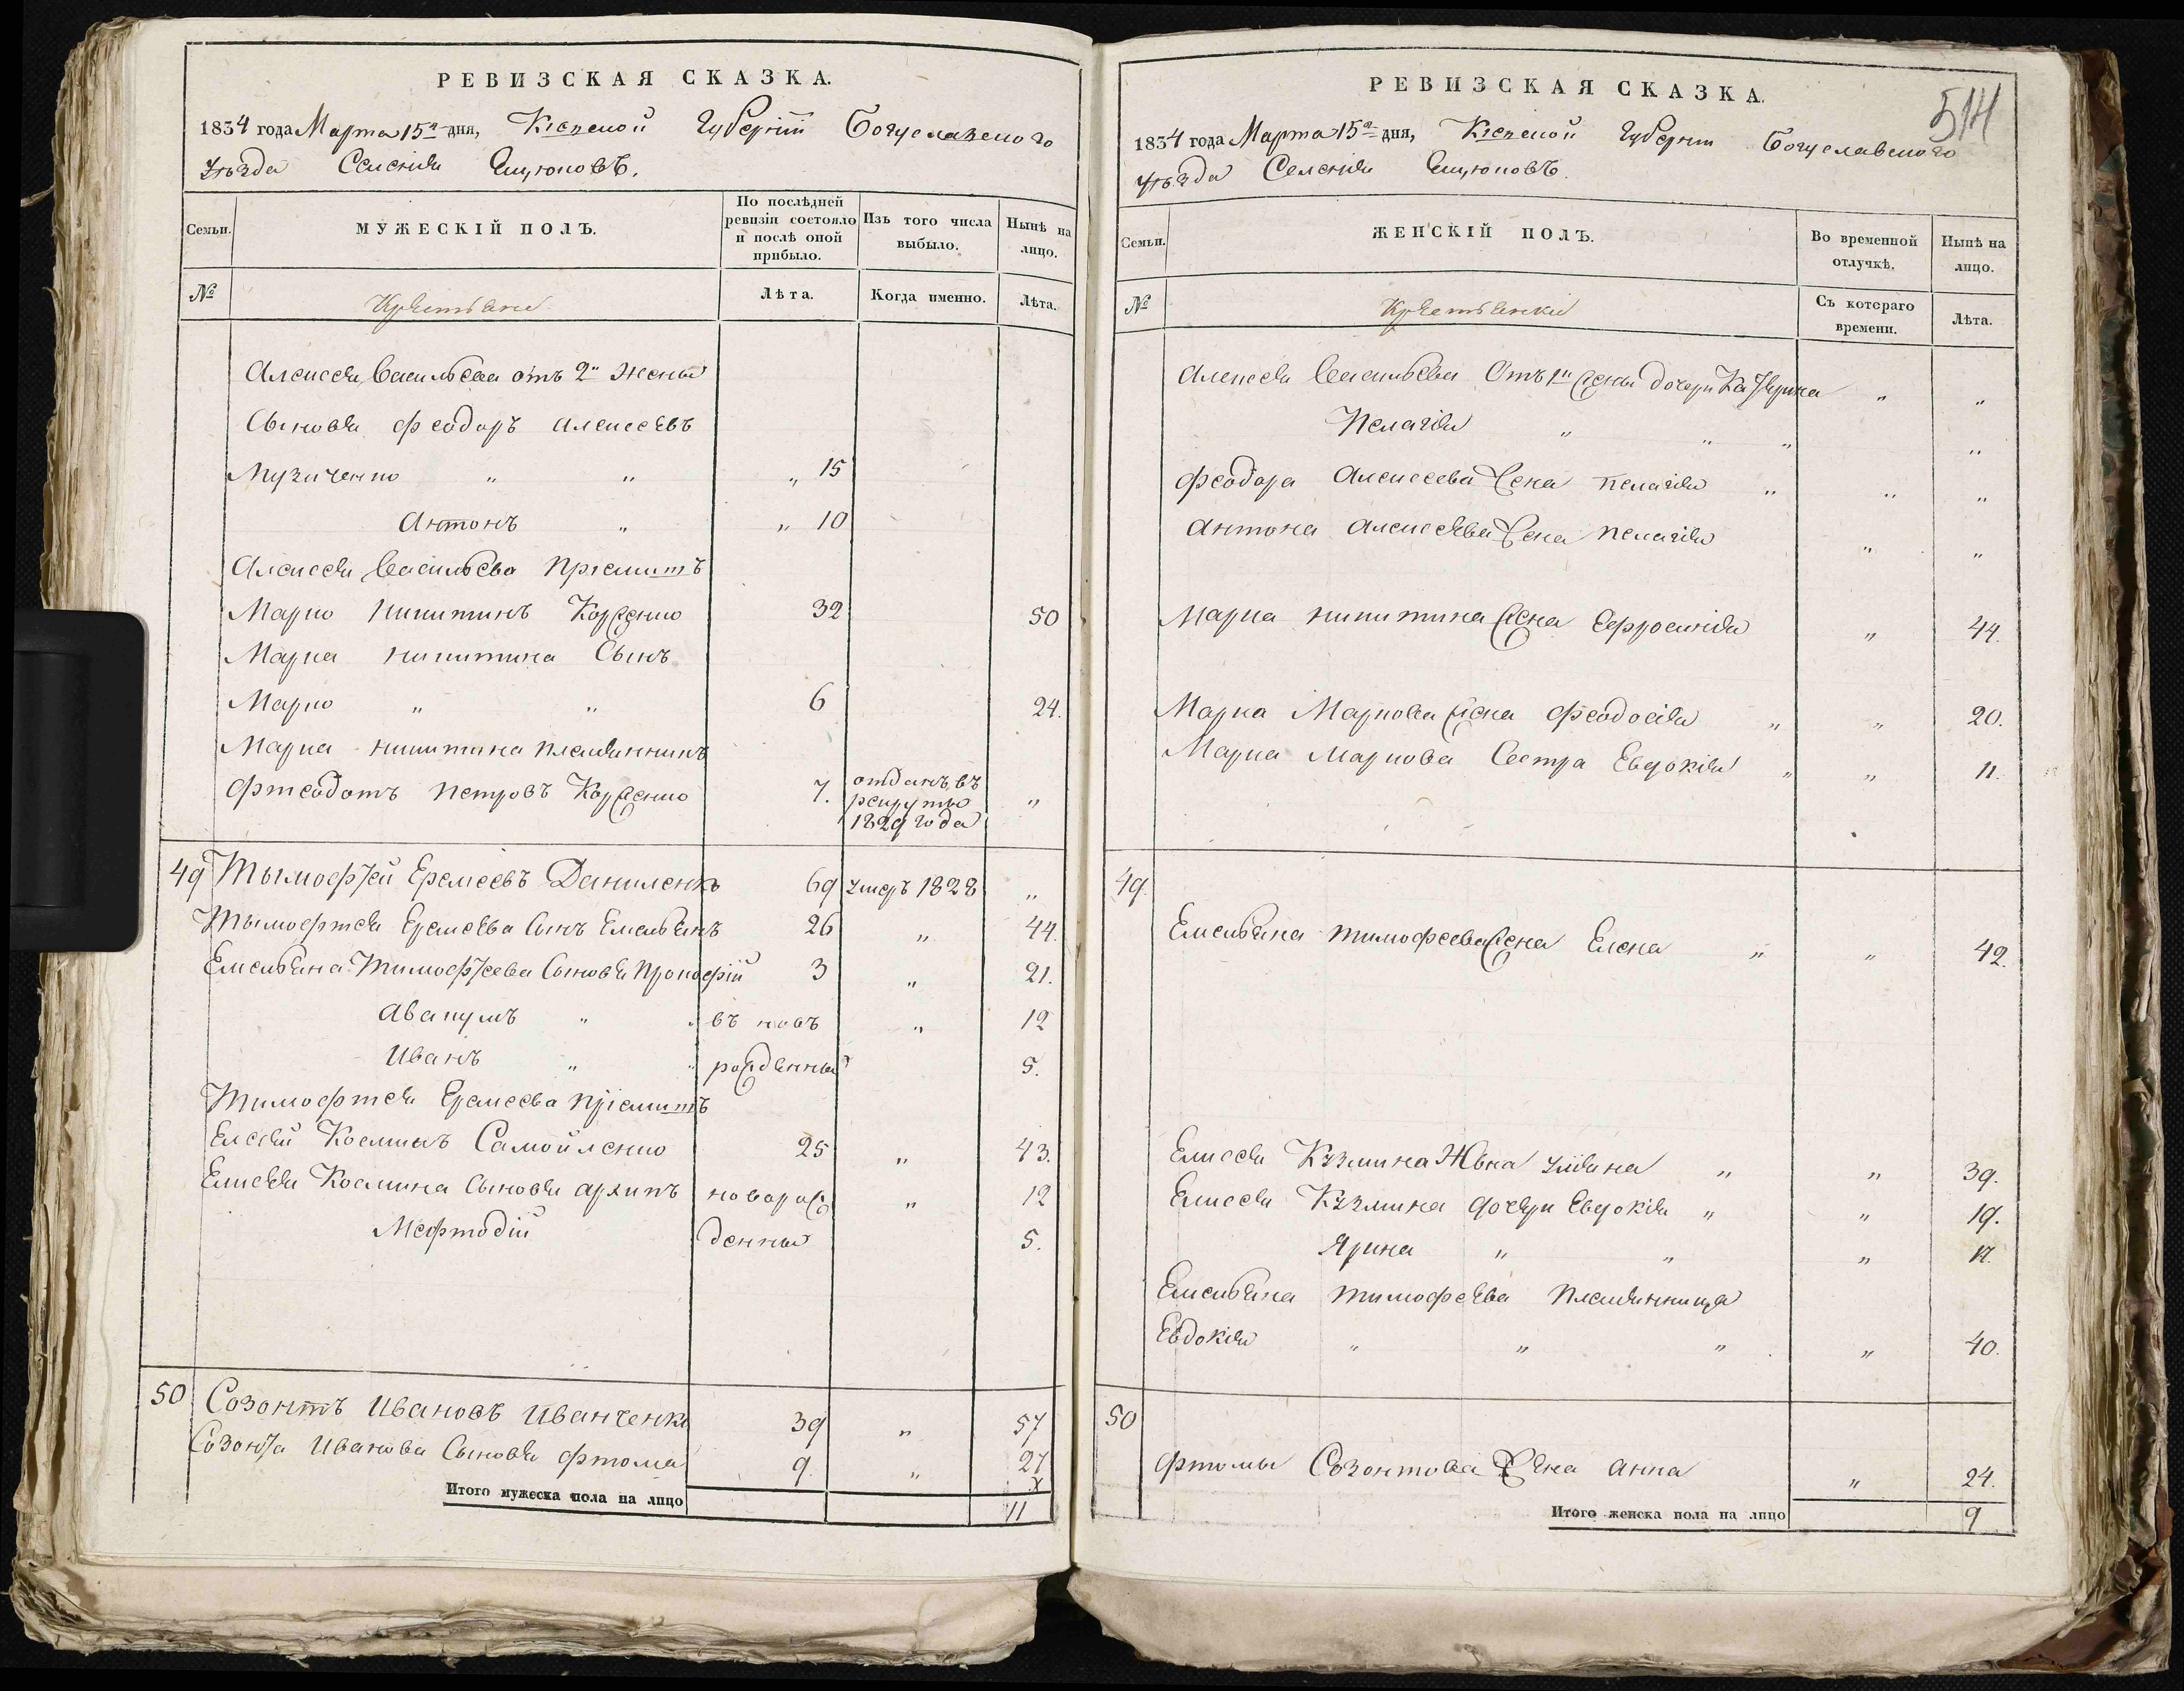 РЕВИЗСКАЯ СКАЗКА.
1834 года Марта 15го дня, Кіевской Губерніи Богуславского
Уѣзда Селенія Емчюковъ.
Семьи.
МУЖЕСКІЙ ПОЛЪ.
По послѣдней ревизіи состояло и послѣ оной прибыло.
Изъ того числа выбыло.
Нынѣ на лицо.
№
Крестьяне
Лѣта.
Когда именно.
Лѣта.
Алексея Васильева отъ 2й жены
Сыновья Феодоръ Алексеевъ
Музиченко " " " 15
Антонъ " " 10
Алексея Васильева Пріемышъ
Марко Никитинъ Корженко 32 50
Марка Никитина Сынъ
Марко " " 6 24.
Марка Никитина племянникъ
Фтеодотъ Петровъ Корженко 7. отданъ въ рекруты 1829 года "
49 Тымофтей Еремеевъ Даниленко 69 умеръ 1828 "
Тымофтея Еремеева Сынъ Емельянъ 26 " 44.
Емельяна Тимофтеева Сыновья Прокофій 3 " 21.
Авакумъ " " въ новъ " 12
Иванъ " " рожденный 5.
Тимофтея Еремеева пріемышъ
Елесей Косминъ Самойленко 25 " 43.
Елисея Космина Сыновья архипъ новорож " 12
Мефтодій денный 5.
50 Созонтъ Ивановъ Иванченко 39 " 57
Созонта Иванова Сыновья Фтома 9. " 27
Итого мужеска пола на лицо 11
РЕВИЗСКАЯ СКАЗКА.
514
1834 года Марта 15го дня, Кіевской Губерніи Богуславского
Уѣзда Селенія Емчюковъ.
Семьи.
ЖЕНСКІЙ ПОЛЪ.
Во временной отлучкѣ.
Нынѣ на лицо.
№
Крестьянки
Съ котораго времени.
Лѣта.
Алексея Васильева Отъ 1й жены дочери Катерина " "
Пелагія " " " "
Феодора Алексеева Жена Пелагія " " "
Антона Алексеева Жена Пелагія " "
Марка Никитина Жена Ефросинія " 44.
Марка Маркова Жена Феодосія " " 20.
Марка Маркова Сестра Евдокія " " 11.
49.
Емельяна Тимофеева Жена Елена " " 42.
Елисея Кузмина Жена Ульяна " " 39.
Елисея Кузмина дочери Евдокія " " 19.
Ярина " " " 17.
Емельяна Тимофеева Племянница
Евдокія " " " " 40.
50
Фтомы Созонтова Жена Анна " 24.
Итого женска пола на лицо 9